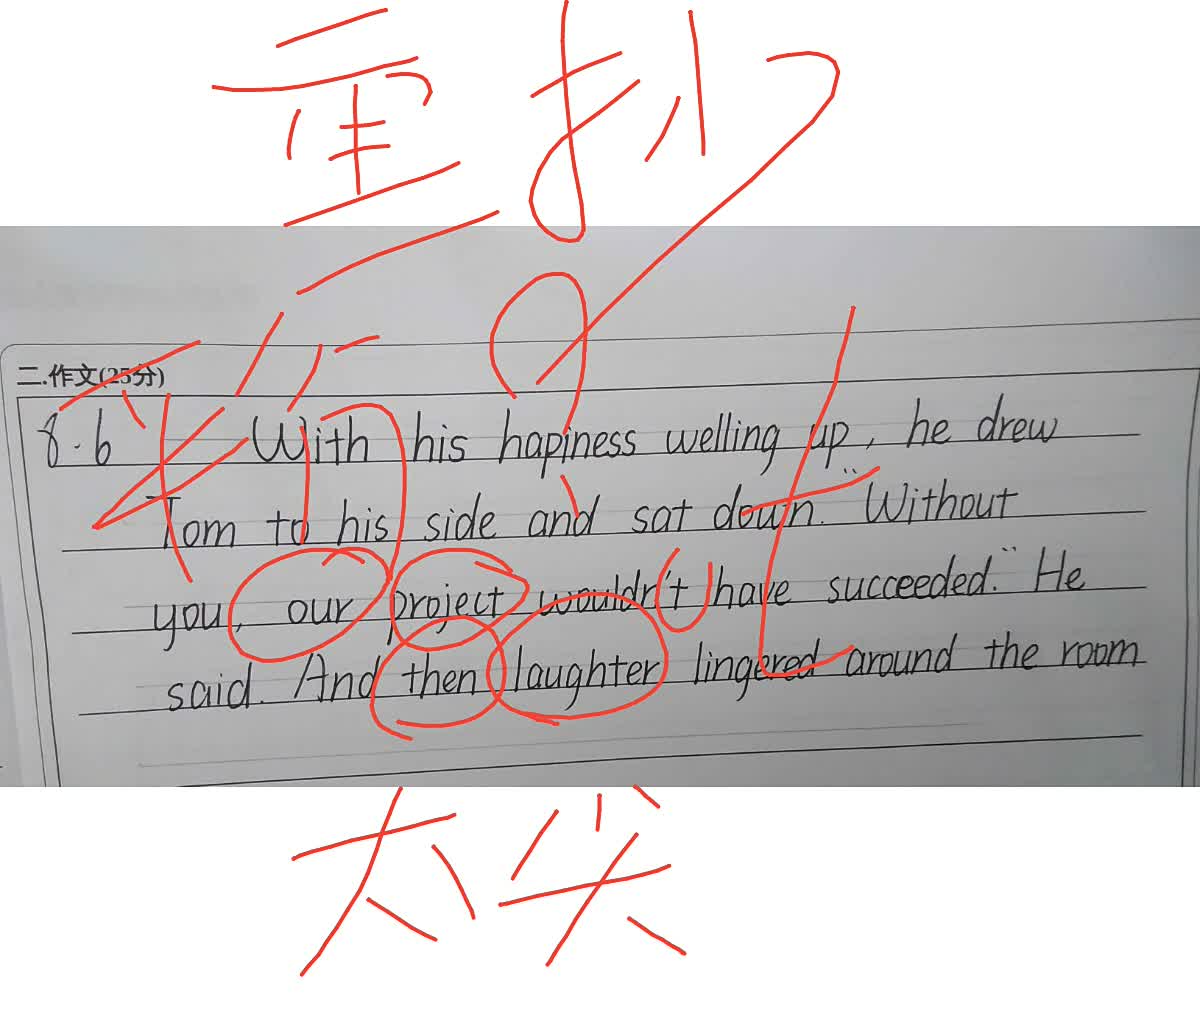 重抄
二.作文(25分)
8.6 With his hapiness welling up, he drew
Tom to his side and sat down. "Without
you, our project wouldn't have succeeded." He
said. And then laughter lingered around the room
太尖